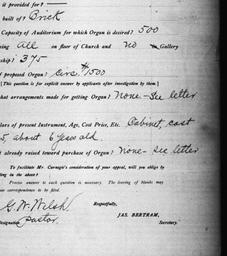 it provided for? —
built of? Brick
Capacity of Auditorium for which Organ is desired? 500
All on floor of Church and no Gallery
ship? 375
f proposed Organ? Circ. $1500
[This question is for explicit answer by applicants after investigation by them.]
hat arrangements made for getting Organ? None - See letter
lars of present Instrument, Age, Cost Price, Etc. Cabinet, cost
5, about 6 year old.
t already raised toward purchase of Organ? None - See letter
To facilitate Mr. Carnegie's consideration of your appeal, will you oblige by
ling in the above?
Precise answer to each question is necessary. The leaving of blanks may
an correspondence to be filed.
Respectfully,
G. W. Welsh
JAS. BERTRAM,
Designation Pastor.
Secretary.